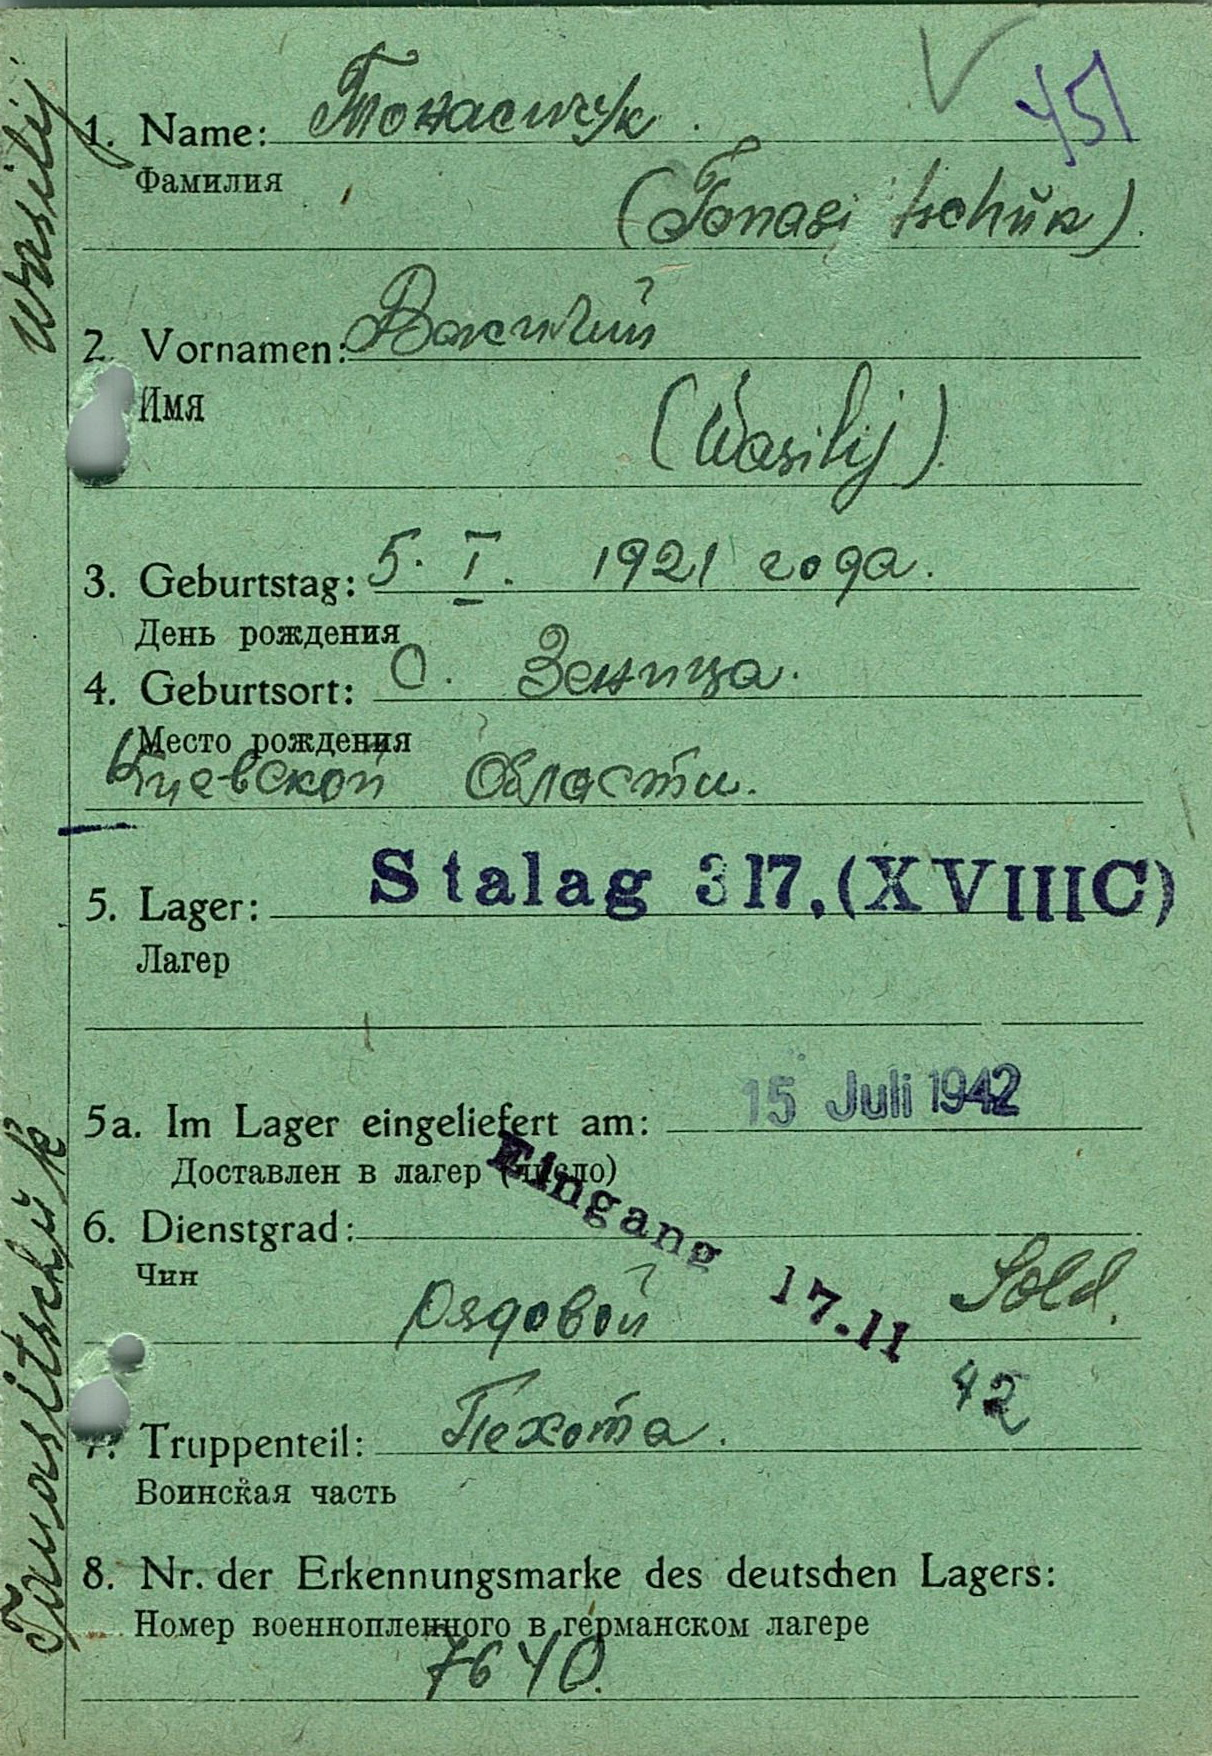 451
1. Name: Тонасичук.
Фамилия
(Tonasitschŭk).
2. Vornamen: Василий
Имя
(Wasilij).
3. Geburtstag: 5. I. 1921 года.
День рождения
4. Geburtsort: С. Зеница.
Место рождения
Киевской Области.
5. Lager: Stalag 317, (XVIIIC)
Лагер
5a. Im Lager eingeliefert am: 15 Juli 1942
Доставлен в лагер (число)
Eingang 17.11 42
6. Dienstgrad:
Чин
Рядовой Sold.
7. Truppenteil: Пехота.
Воинская часть
8. Nr. der Erkennungsmarke des deutschen Lagers:
Номер военнопленного в германском лагере
7640.
Tonasitschŭk Wasilij